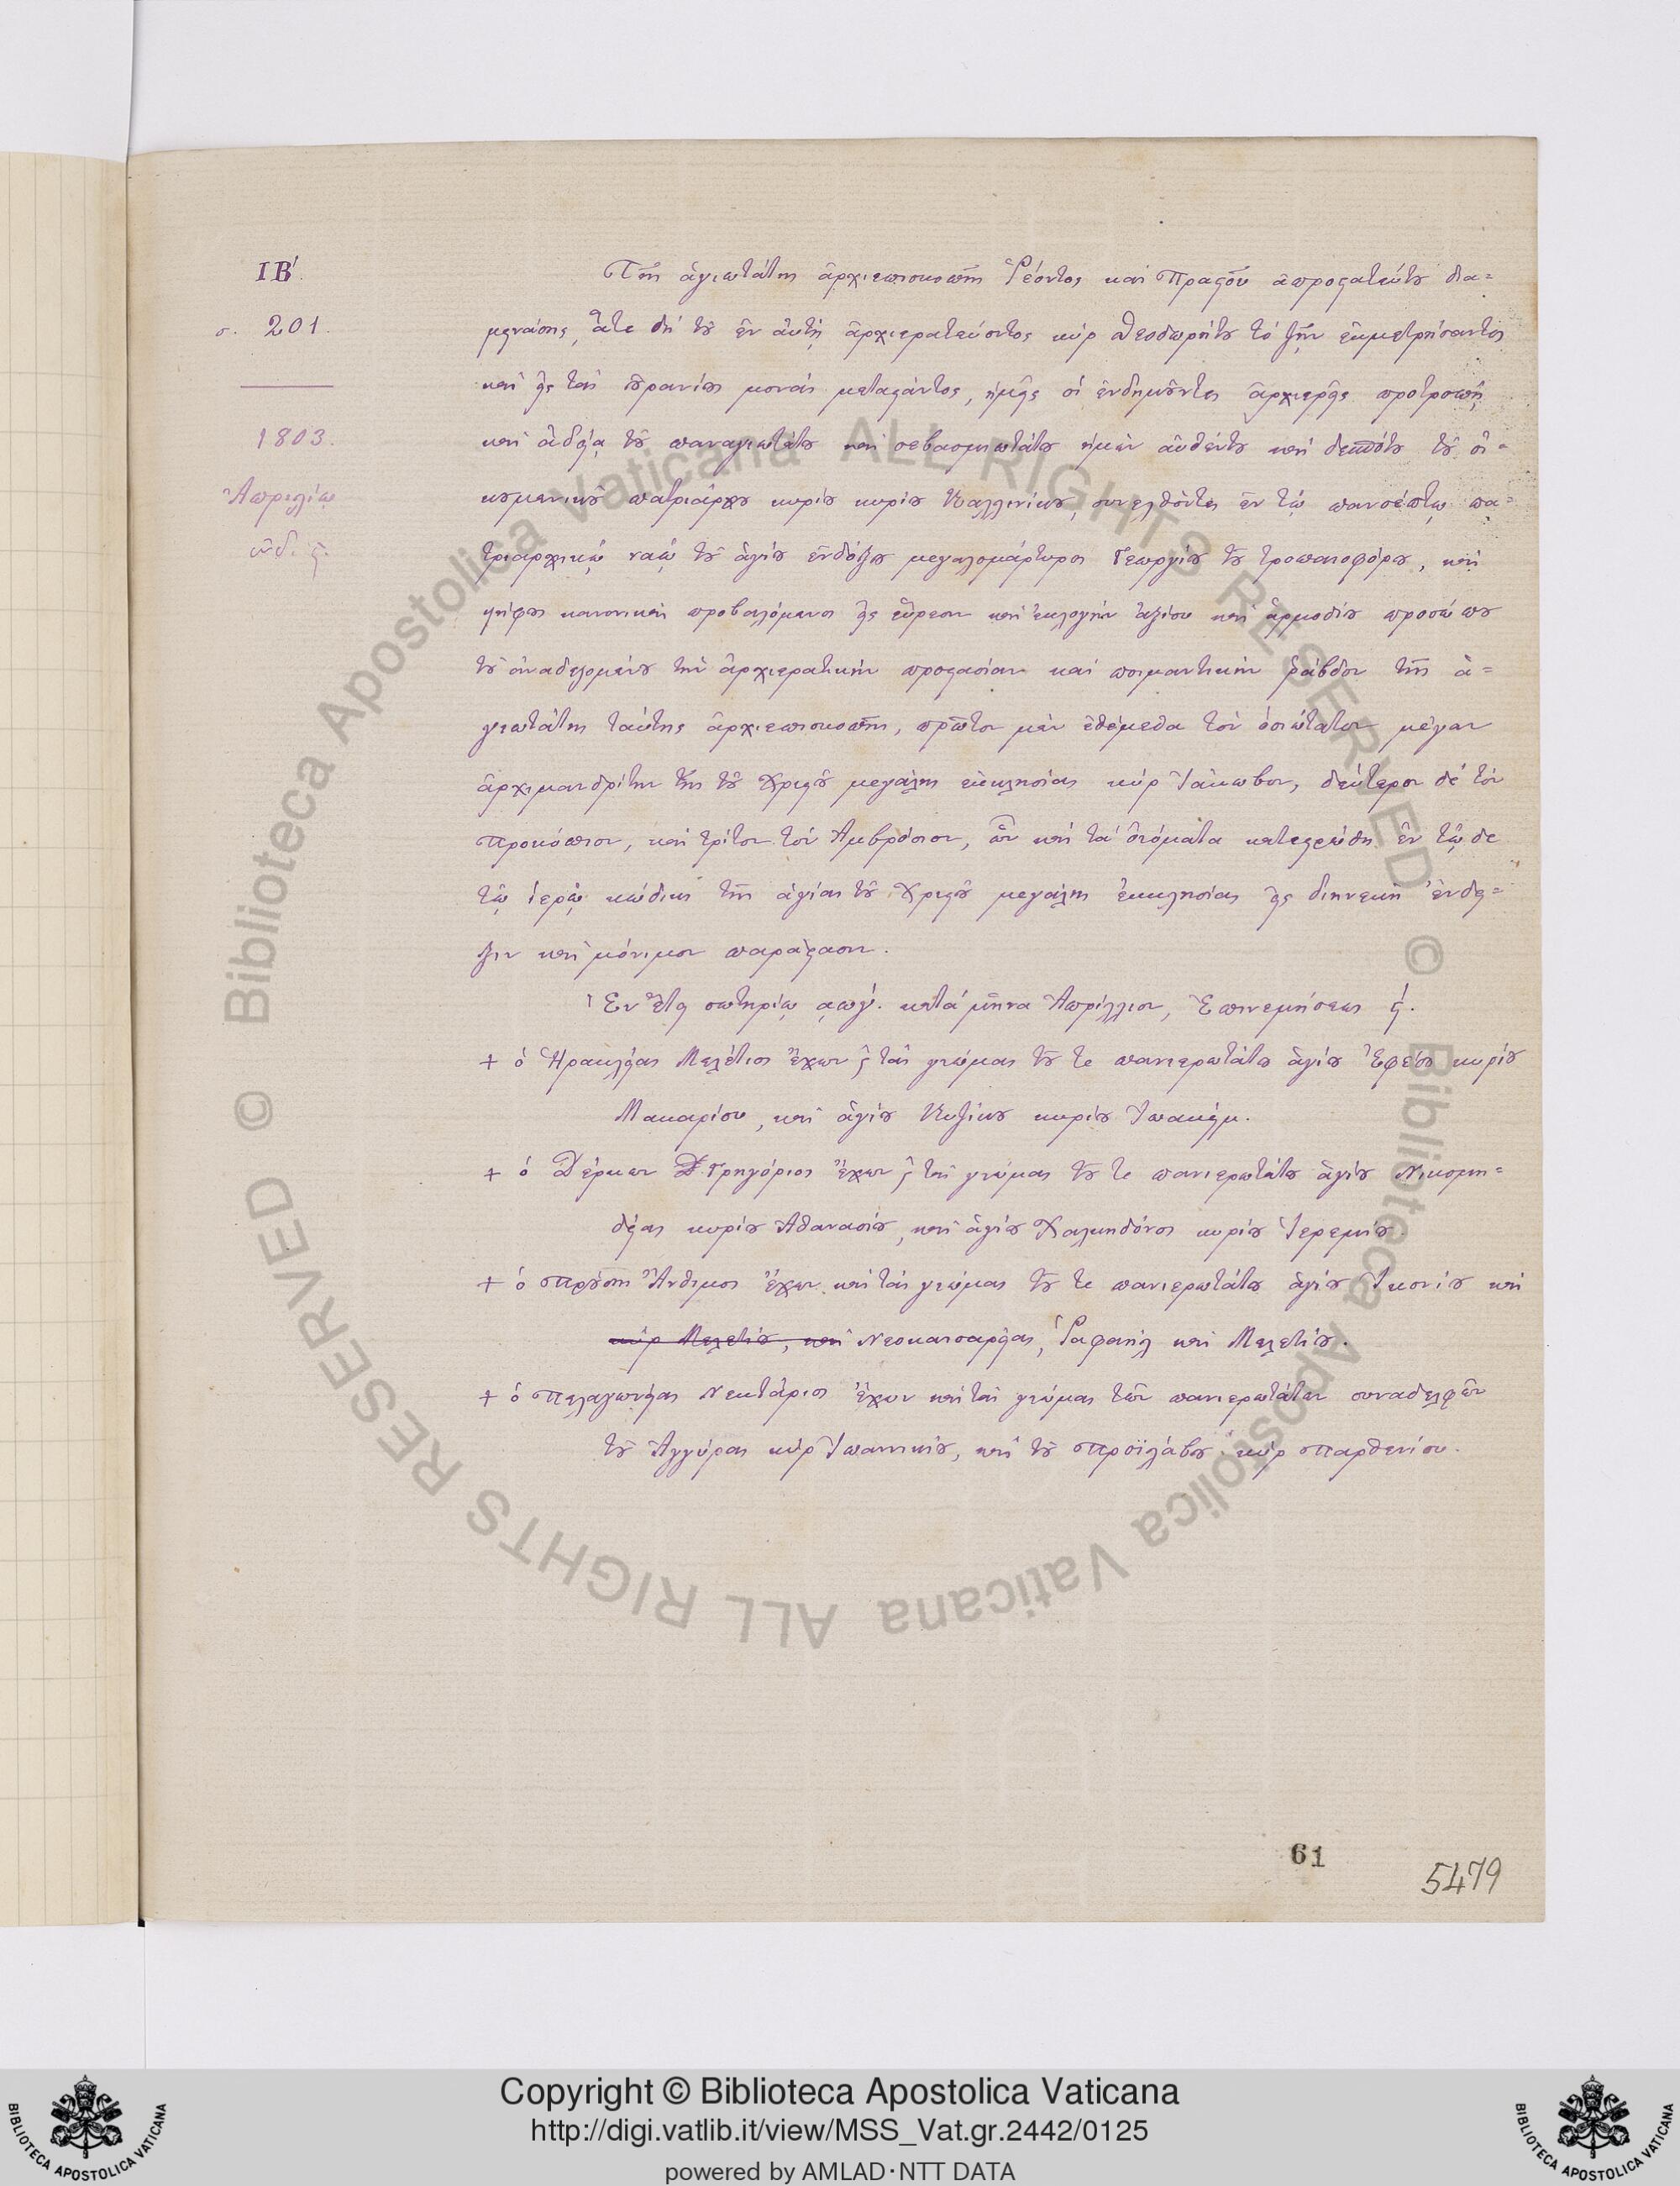 ΙΒ΄.
σ. 201.
1803.
Ἀπριλίῳ
ἰνδ. ϛ.
Τῆς ἁγιωτάτης ἀρχιεπισκοπῆς Ῥέοντος καὶ Πραστοῦ ἀπροστατεύτου δια=
μεινάσης, ἅτε δὴ τοῦ ἐν αὐτῇ ἀρχιερατεύοντος κὺρ Θεοδωρήτου τὸ ζῆν ἐκμετρήσαντος
καὶ εἰς τὰς οὐρανίους μονὰς μεταστάντος, ἡμεῖς οἱ ἐνδημοῦντες ἀρχιερεῖς προτροπῇ
καὶ ἀδείᾳ τοῦ παναγιωτάτου καὶ σεβασμιωτάτου ἡμῶν αὐθέντου καὶ δεσπότου τοῦ οἰ=
κουμενικοῦ πατριάρχου κυρίου κυρίου Καλλινίκου, συνελθόντες ἐν τῷ πανσέπτῳ πα=
τριαρχικῷ ναῷ τοῦ ἁγίου ἐνδόξου μεγαλομάρτυρος Γεωργίου τοῦ τροπαιοφόρου, καὶ
ψήφους κανονικὰς προβαλόμενοι εἰς εὕρεσιν καὶ ἐκλογὴν ἀξίου καὶ ἁρμοδίου προσώπου
τοῦ ἀναδεξομένου τὴν ἀρχιερατικὴν προστασίαν καὶ ποιμαντικὴν ῥάβδον τῆς ἁ=
γιωτάτης ταύτης ἀρχιεπισκοπῆς, πρῶτον μὲν ἐθέμεθα τὸν ὁσιώτατον μέγαν
ἀρχιμανδρίτην τῆς τοῦ Χριστοῦ μεγάλης ἐκκλησίας κὺρ Ἰάκωβον, δεύτερον δὲ τὸν
Προκόπιον, καὶ τρίτον τὸν Ἀμβρόσιον, ὧν καὶ τὰ ὀνόματα κατεστρώθη ἐν τῷδε
τῷ ἱερῷ κώδικι τῆς ἁγίας τοῦ Χριστοῦ μεγάλης ἐκκλησίας εἰς διηνεκῆ ἔνδει=
ξιν καὶ μόνιμον παράστασιν.
Ἐν ἔτει σωτηρίῳ αωγ΄. κατὰ μῆνα Ἀπρίλλιον, Ἐπινεμήσεως ϛ΄.
+ ὁ Ἡρακλείας Μελέτιος ἔχων καὶ τὰς γνώμας τοῦ τε πανιερωτάτου ἁγίου Ἐφέσου κυρίου
Μακαρίου, καὶ ἁγίου Κυζίκου κυρίου Ἰωακείμ.
+ ὁ Δέρκων Γρηγόριος ἔχων καὶ τὰς γνώμας τοῦ τε πανιερωτάτου ἁγίου Νικομη=
δείας κυρίου Ἀθανασίου, καὶ ἁγίου Χαλκηδόνος κυρίου Ἱερεμίου.
+ ὁ Προύσης Ἄνθιμος ἔχων καὶ τὰς γνώμας τοῦ τε πανιερωτάτου ἁγίου Ἰκονίου καὶ
κὺρ Μελετίου, καὶ Νεοκαισαρείας, Ῥαφαὴλ καὶ Μελετίου.
+ ὁ Πελαγωνείας Νεκτάριος ἔχων καὶ τὰς γνώμας τῶν πανιερωτάτων συναδελφῶν
τοῦ Ἀγγύρας κὺρ Ἰωαννικίου, καὶ τοῦ Προϊλάβου κὺρ Παρθενίου.
61
5479
© Biblioteca Apostolica Vaticana ALL RIGHTS RESERVED
© Biblioteca Apostolica Vaticana ALL RIGHTS RESERVED
Copyright © Biblioteca Apostolica Vaticana
http://digi.vatlib.it/view/MSS_Vat.gr.2442/0125
powered by AMLAD·NTT DATA
BIBLIOTECA APOSTOLICA VATICANA
BIBLIOTECA APOSTOLICA VATICANA